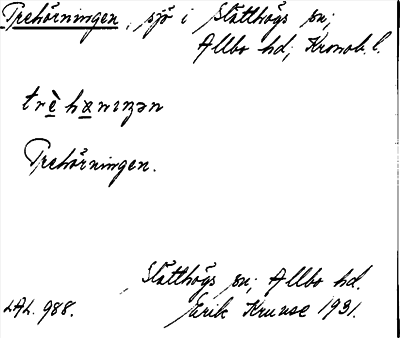 Trehörningen, sjö i Slätthögs sn;
Allbo hd; Kronob. l.
Trehörningen.
Slätthögs sn; Allbo hd.
LAL. 988. Erik Kruuse 1931.